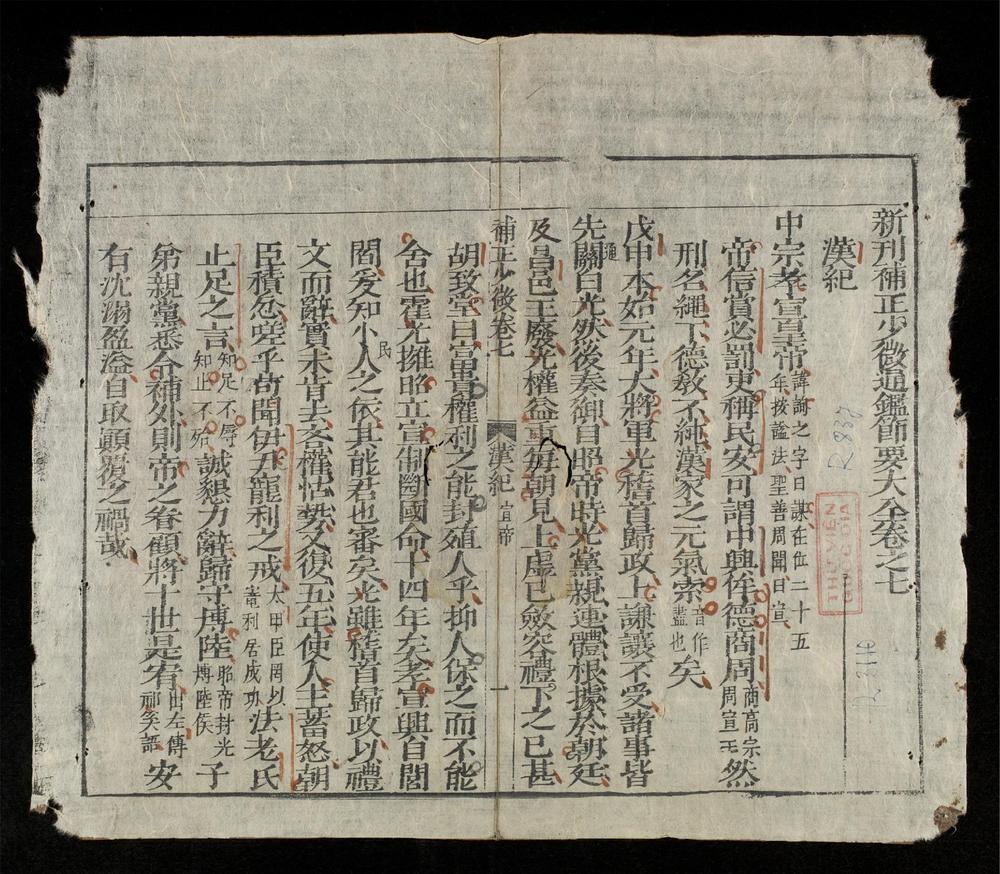 新刊補正少微通鑑節要大全卷之七
漢紀
中宗孝宣皇帝諱詢之字曰謀在位二十五年按謚法聖善周聞曰宣
帝信賞必罰吏稱民安可謂中興侔德商周商高宗周宣王然
刑名繩下德教不純漢家之元氣索音作盡也矣
戊申本始元年大將軍光稽首歸政上謙讓不受諸事皆
先關通白光然後奏御自昭帝時光黨親連體根據於朝廷
及昌邑王廢光權益重每朝見上虛已斂容禮下之已甚
補正少微卷七 漢紀 宣帝 一
胡致堂曰富貴權利之能封殖人乎抑人保之而不能
舍也霍光擁昭立宣制斷國命十四年矣孝宣興自閭
閻爰知小人民之依其能君也審矣光雖稽首歸政以禮
文而辭實未肯去吝權怙勢又復五年使人主蓄怒朝
臣積忿嗟乎胡聞伊尹寵利之戒太甲臣罔以竉利居成功法老氏
止足之言知足不辱知止不殆誠懇力辭歸守博陸昭帝封光博陸侯子
第親黨悉令補外則帝之眷顧將十世是宥出左傳祁奚語安
有沈溺盈溢自取顛覆之禍哉
THƯ VIỆN
QUỐC GIA